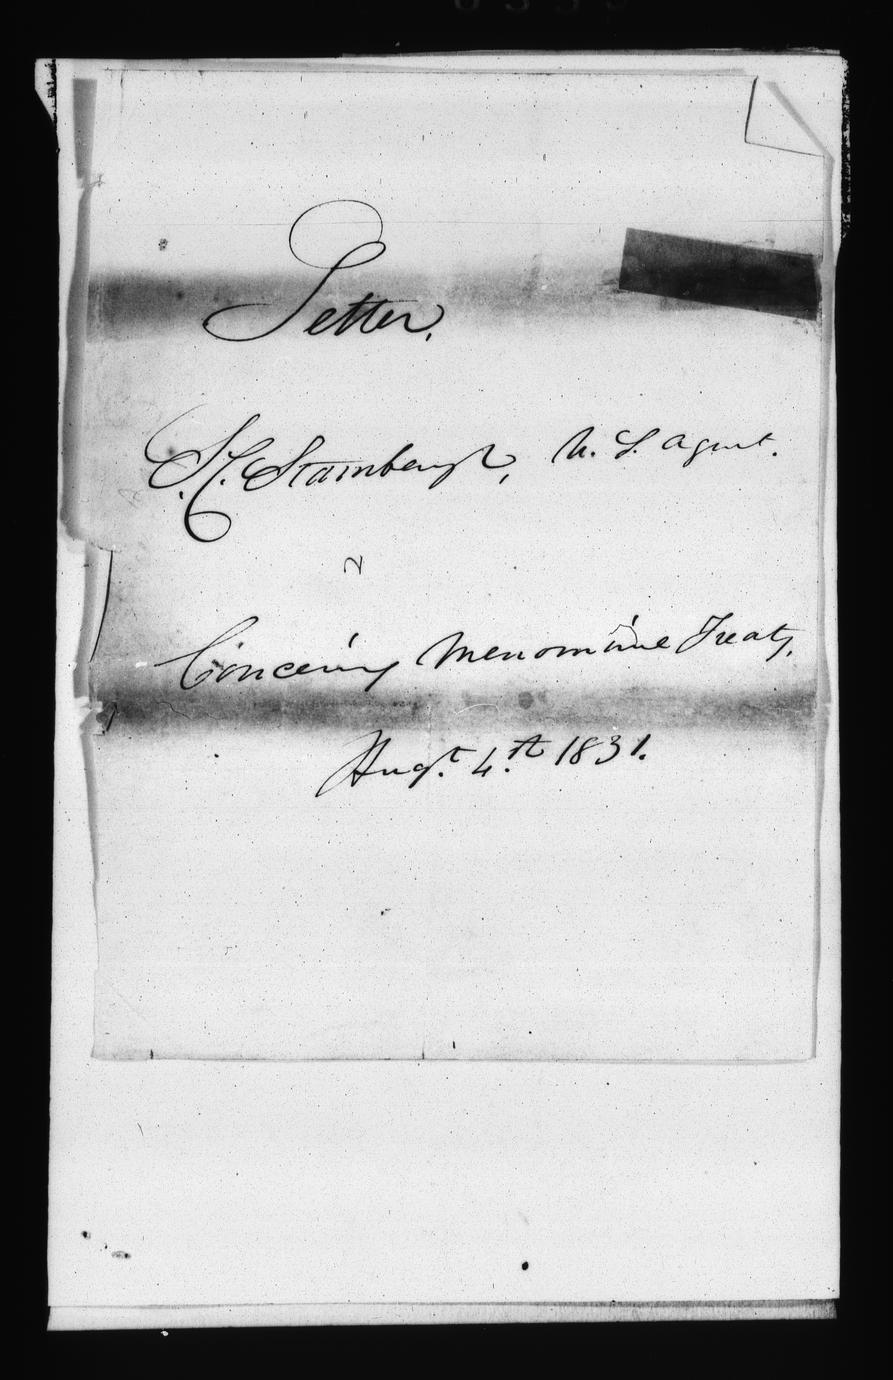 Letter,
S. C. Stambaugh, U. S. Agent.
Concering Menominie Treaty,
Augt. 4th. 1831.